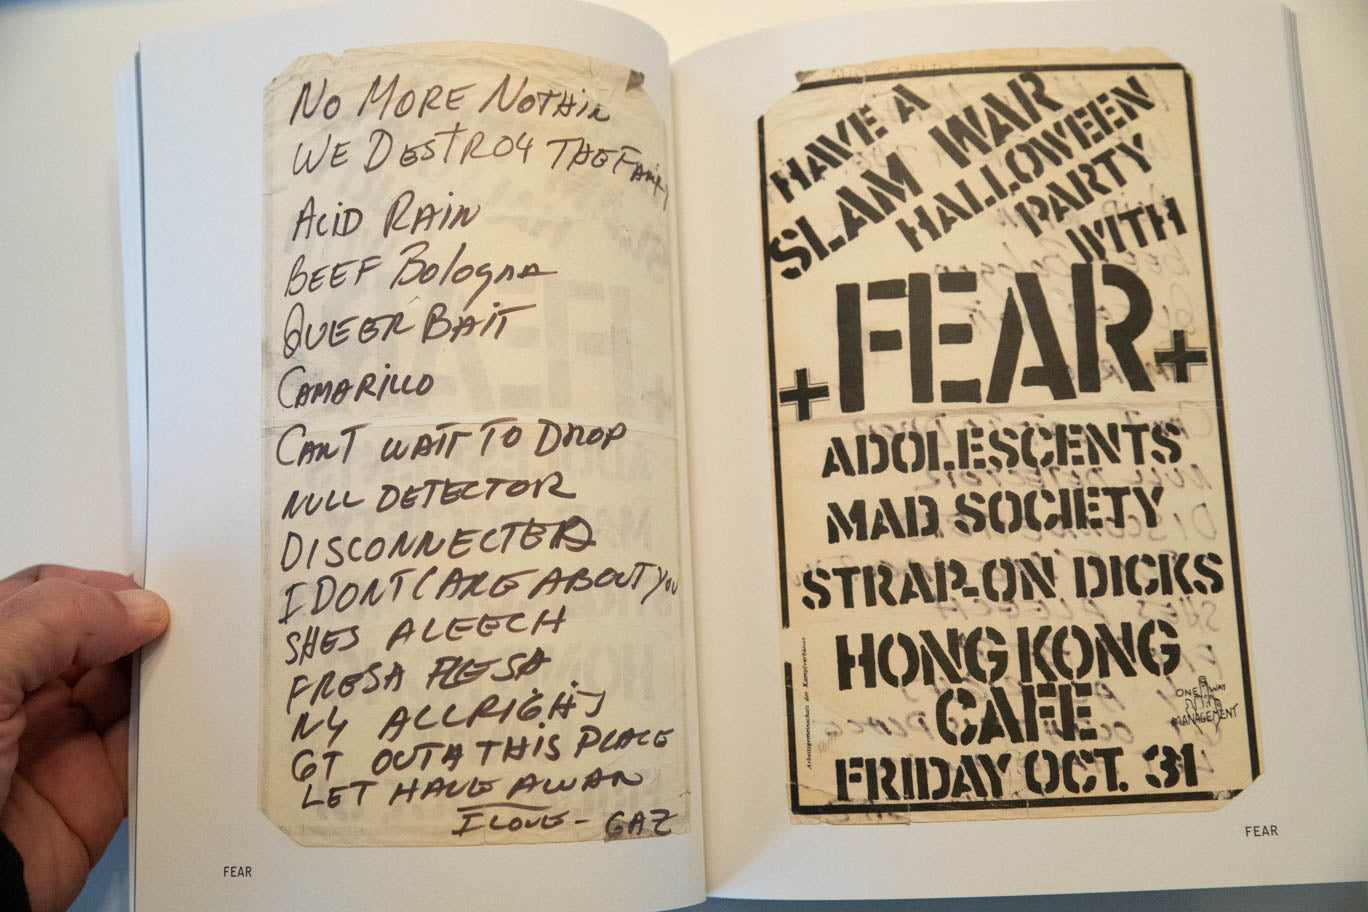 NO MORE NOTHIN
WE DESTROY THE FAMILY
ACID RAIN
BEEF Bologna
QUEER BAIT
CAMARILLO
CANT WAIT TO DROP
NULL DETECTOR
DISCONNECTED
I DONT CARE ABOUT YOU
SHES A LEECH
FRESA FLESA
NY ALLRIGHT
GT OUTA THIS PLACE
LET HAVE A WAR
I LOVE - GAZ
FEAR
HAVE A
SLAM WAR
HALLOWEEN
PARTY
WITH
FEAR
ADOLESCENTS
MAD SOCIETY
STRAP-ON DICKS
HONG KONG
CAFE
FRIDAY OCT. 31
ONE WAY
MANAGEMENT
Arbeitsgemeinschaft der Kampfverbände
FEAR